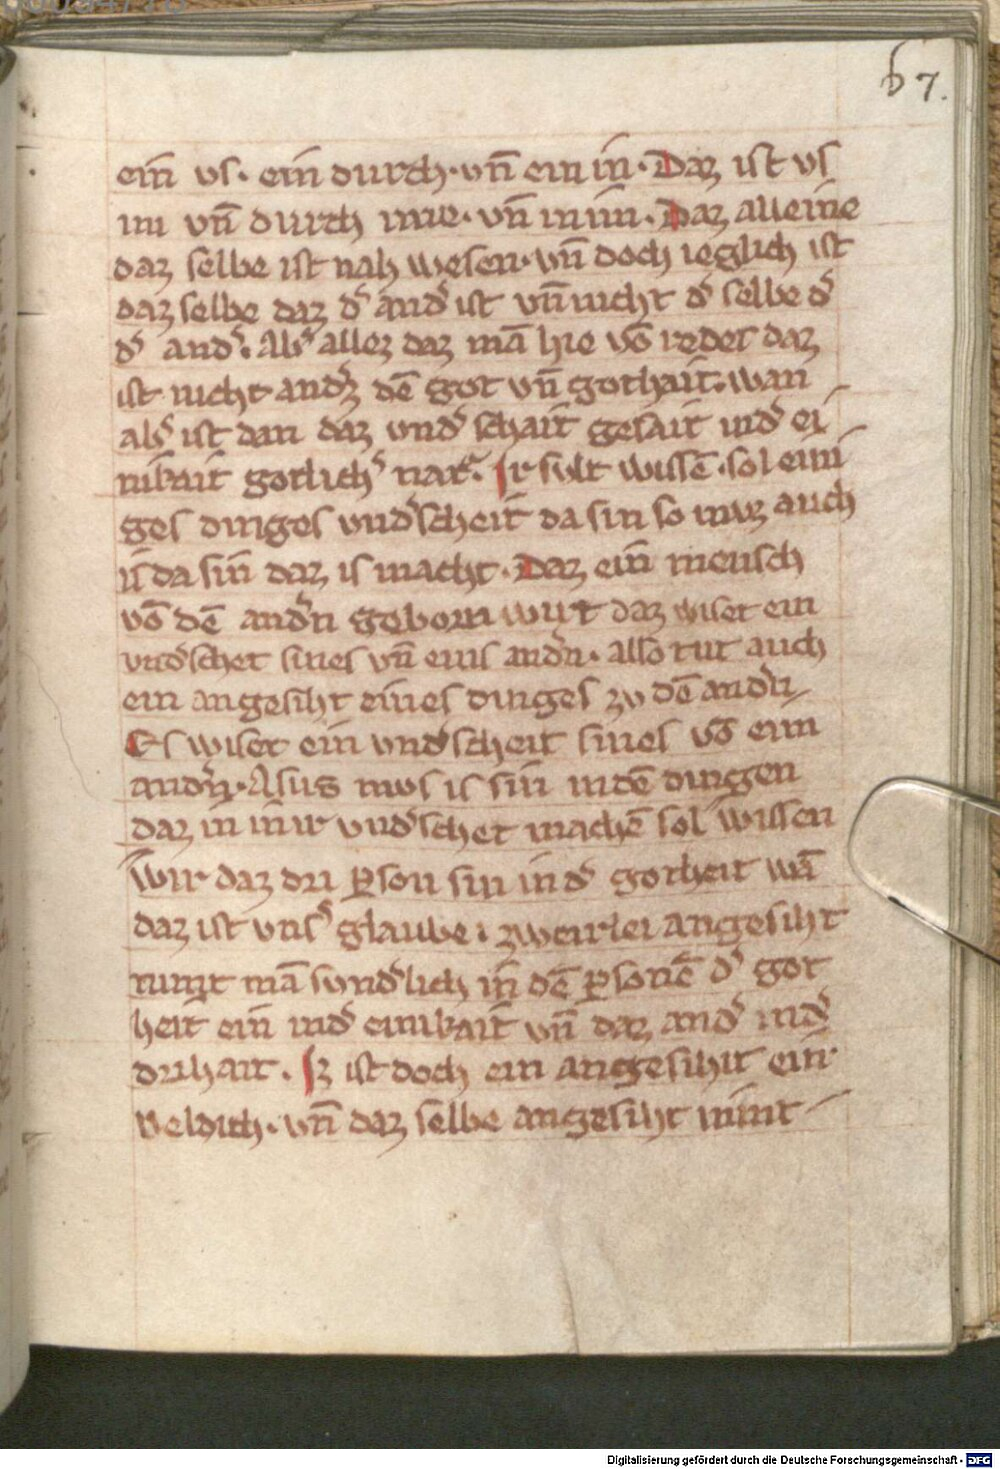 67.
ein vs · ein durch · vn̄ ein in · Daz ist vs
im vn̄ durch ime · vn̄ in im · Daz alleine
daz selbe ist nah wesen · vn̄ doch ieglich ist
daz selbe daz dˀ andˀ ist vn̄ nicht dˀ selbe dˀ
dˀ andˀ · Alsˀ allez daz mā hie vō redet daz
ist nicht andˀz dē got vn̄ gothait · wan
alsˀ ist dan daz vndˀschait gesait indˀ ei
nikait gotlichˀ nat͛ · Ir sult wissē · sol eini
ges dinges vndˀscheit da sin so muz auch
is da sin daz is macht · Daz ein mensch
vō dē andˀn geborn wirt daz wiset ein
vndˀschet sines vn̄ eins andˀn · also tut auch
ein angesiht eines dinges zu dē andˀn
Es wiset ein vndˀscheit sines vō eim
andˀn · Asus mvs is sin indē dingen
daz in mir vndˀschet machē sol wissen
Wir daz dri ꝑson sin in dˀ gotheit wā
daz ist vnsˀ glaube · zweirlei angesiht
nimt mā svndˀlich in dē ꝑsonē dˀ got
heit ein indˀ einikait vn̄ daz andˀ indˀ
drihait · Iz ist doch ein angesiht ein
veldich · vn̄ daz selbe angesiht nimt
Digitalisierung gefördert durch die Deutsche Forschungsgemeinschaft - DFG